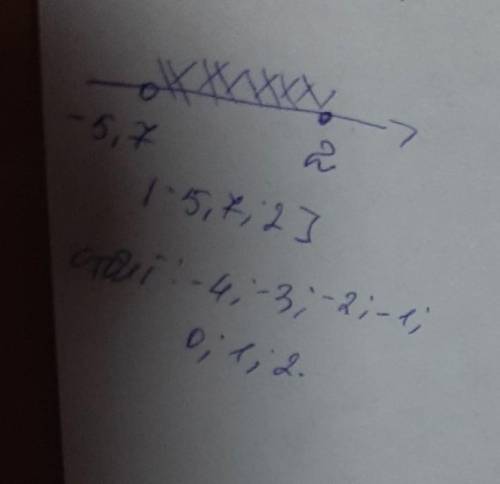 -5,7 2
(-5,7; 2]
-4; -3; -2; -1;
0; 1; 2.